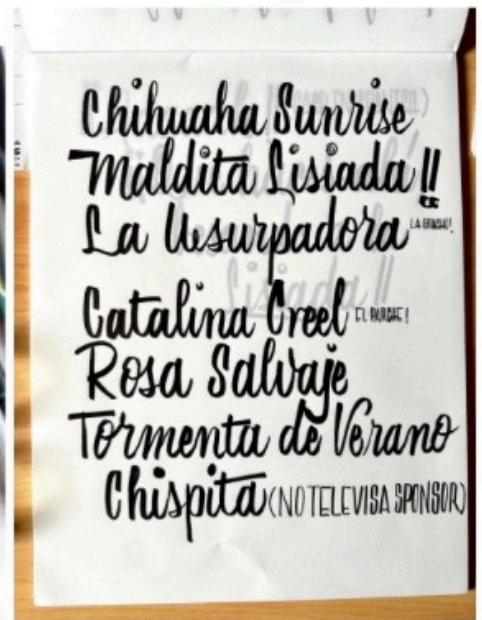 Chihuaha Sunrise
Maldita Lisiada!!
La Uesurpadora
Catalina Creel EL PARCHE!
Rosa Salvaje
Tormenta de Verano
Chispita (NO TELEVISA SPONSOR)